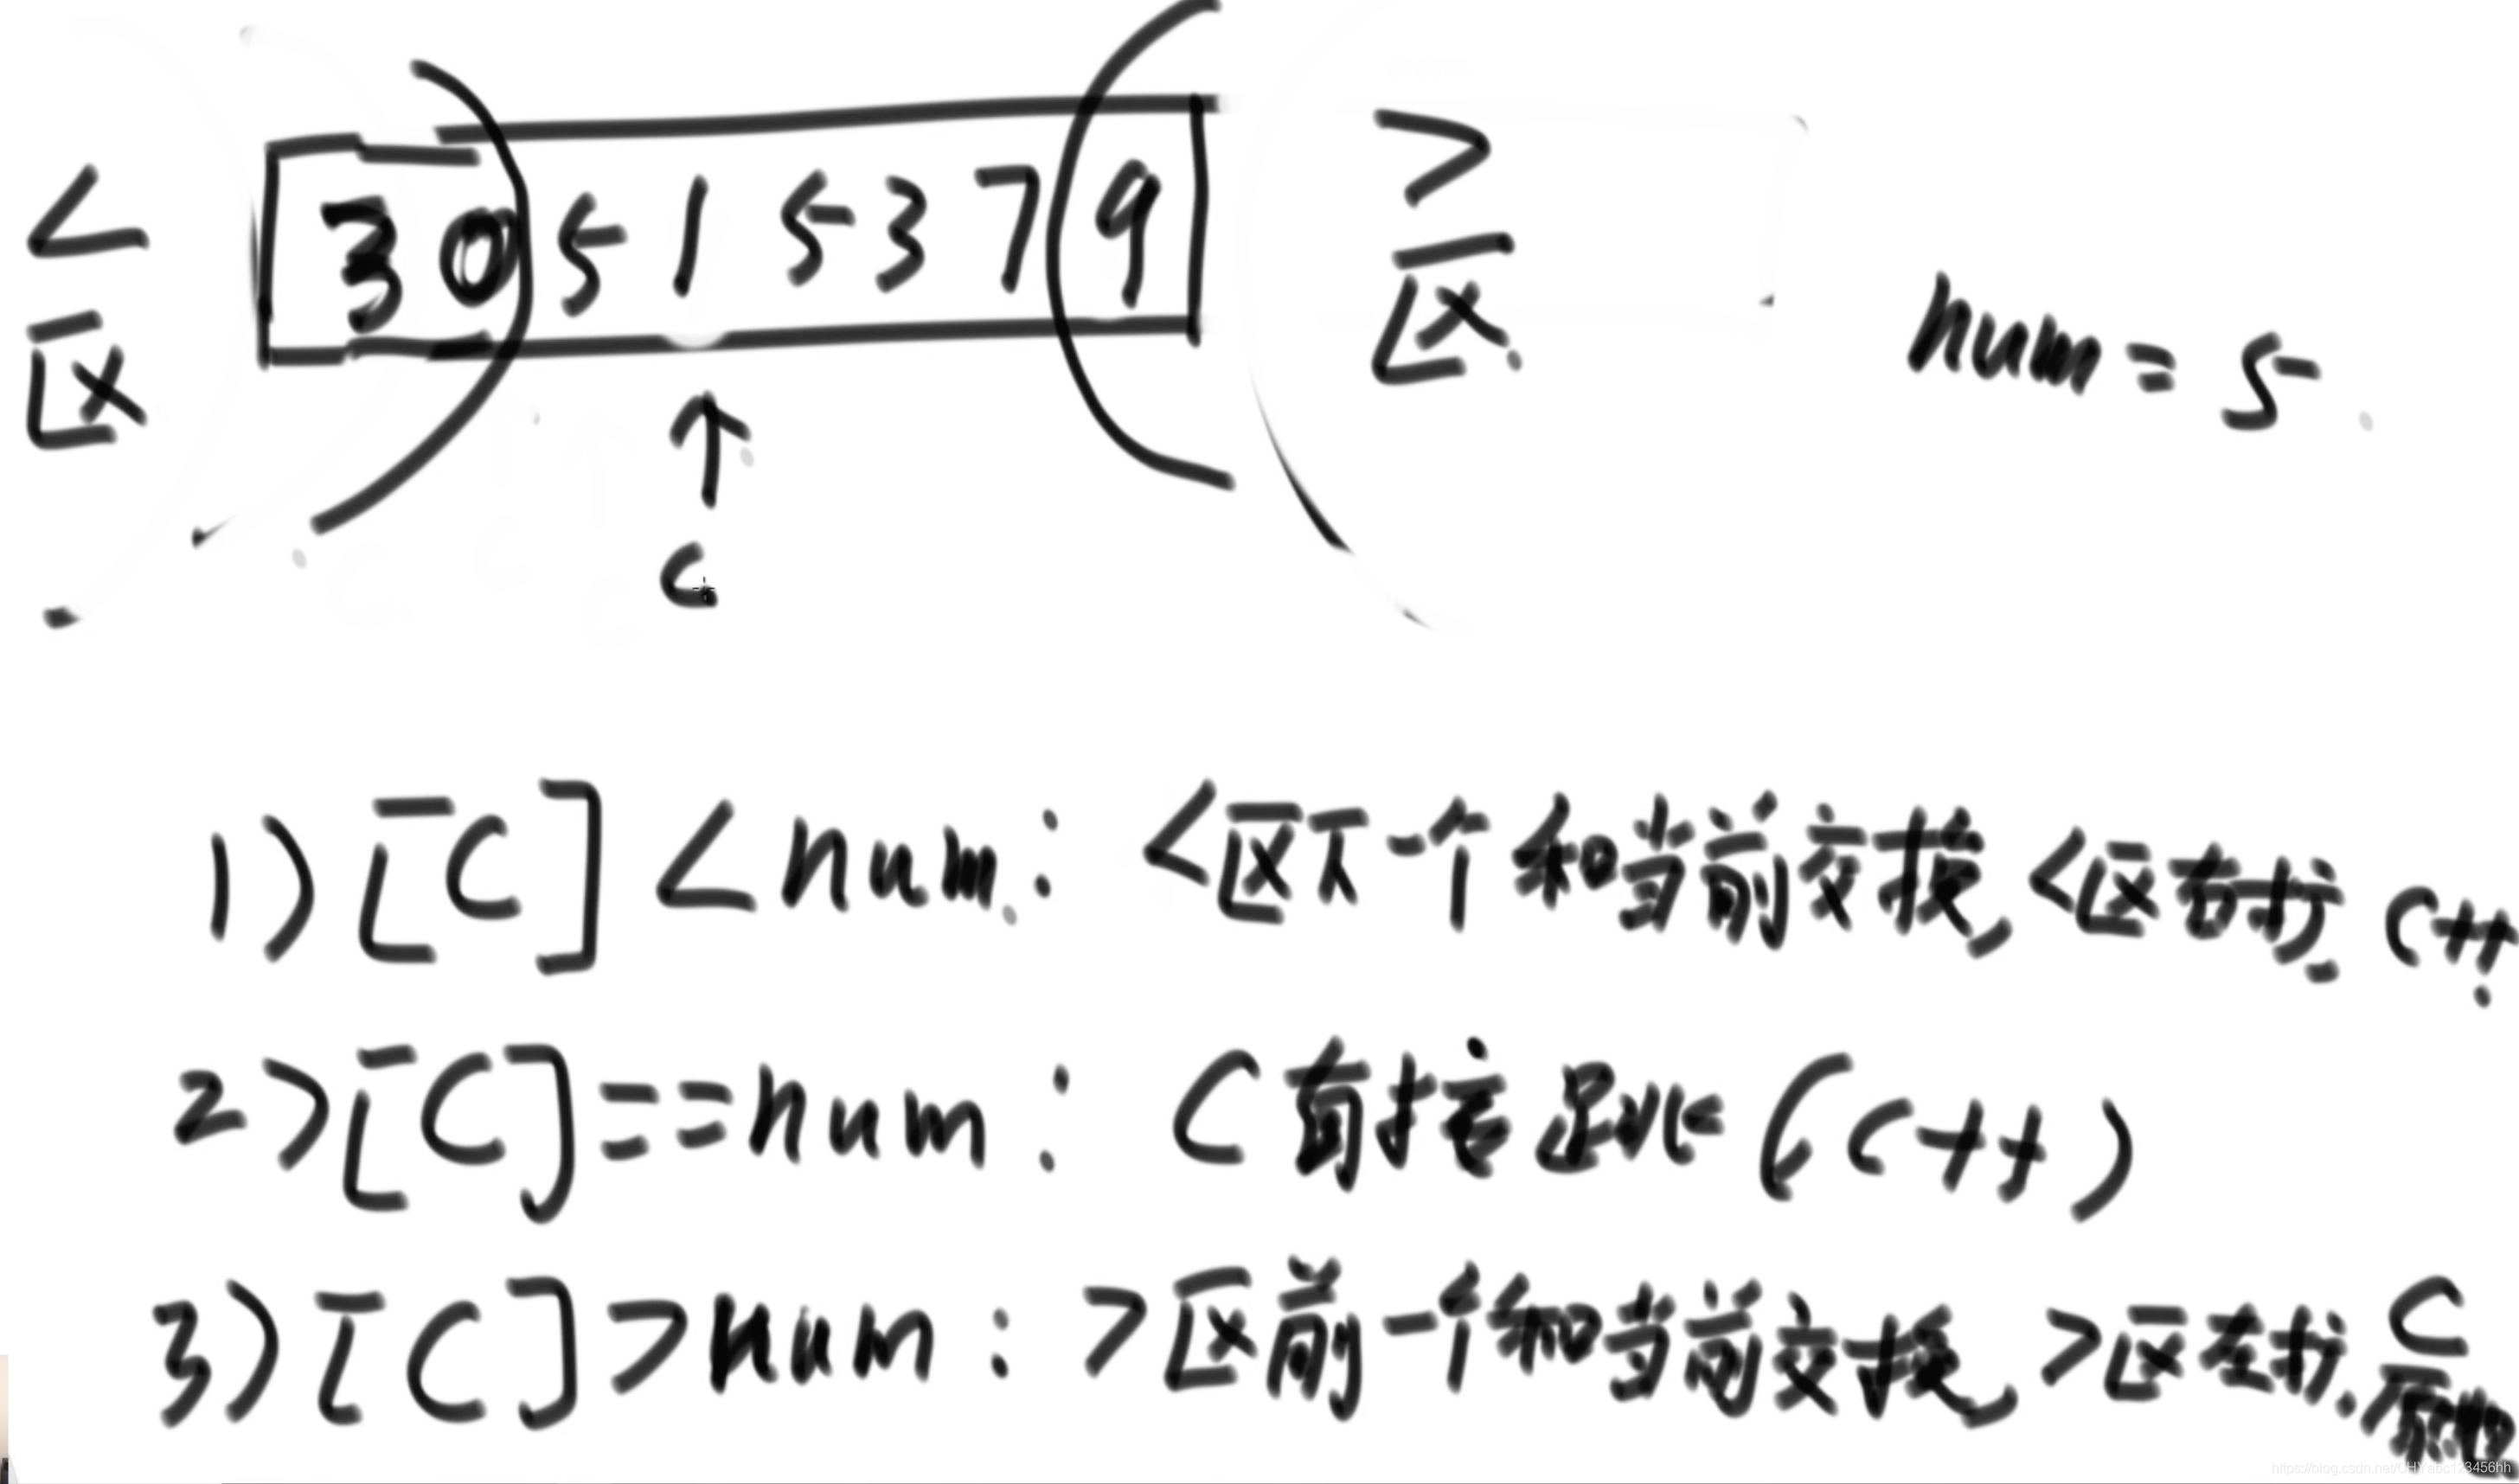 <区 3 0 5 1 5 3 7 9 >区 num = 5
↑
C
1) [C] < num: <区下一个和当前交换, <区右扩, C++
2) [C] == num: C直接跳 (C++)
3) [C] > num: >区前一个和当前交换, >区左扩. C原地
https://blog.csdn.net/CHYabc123456hh